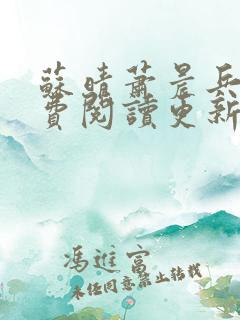 蘇晴蕭晨兵
費閱讀更新
馮進富
未經同意禁止轉載